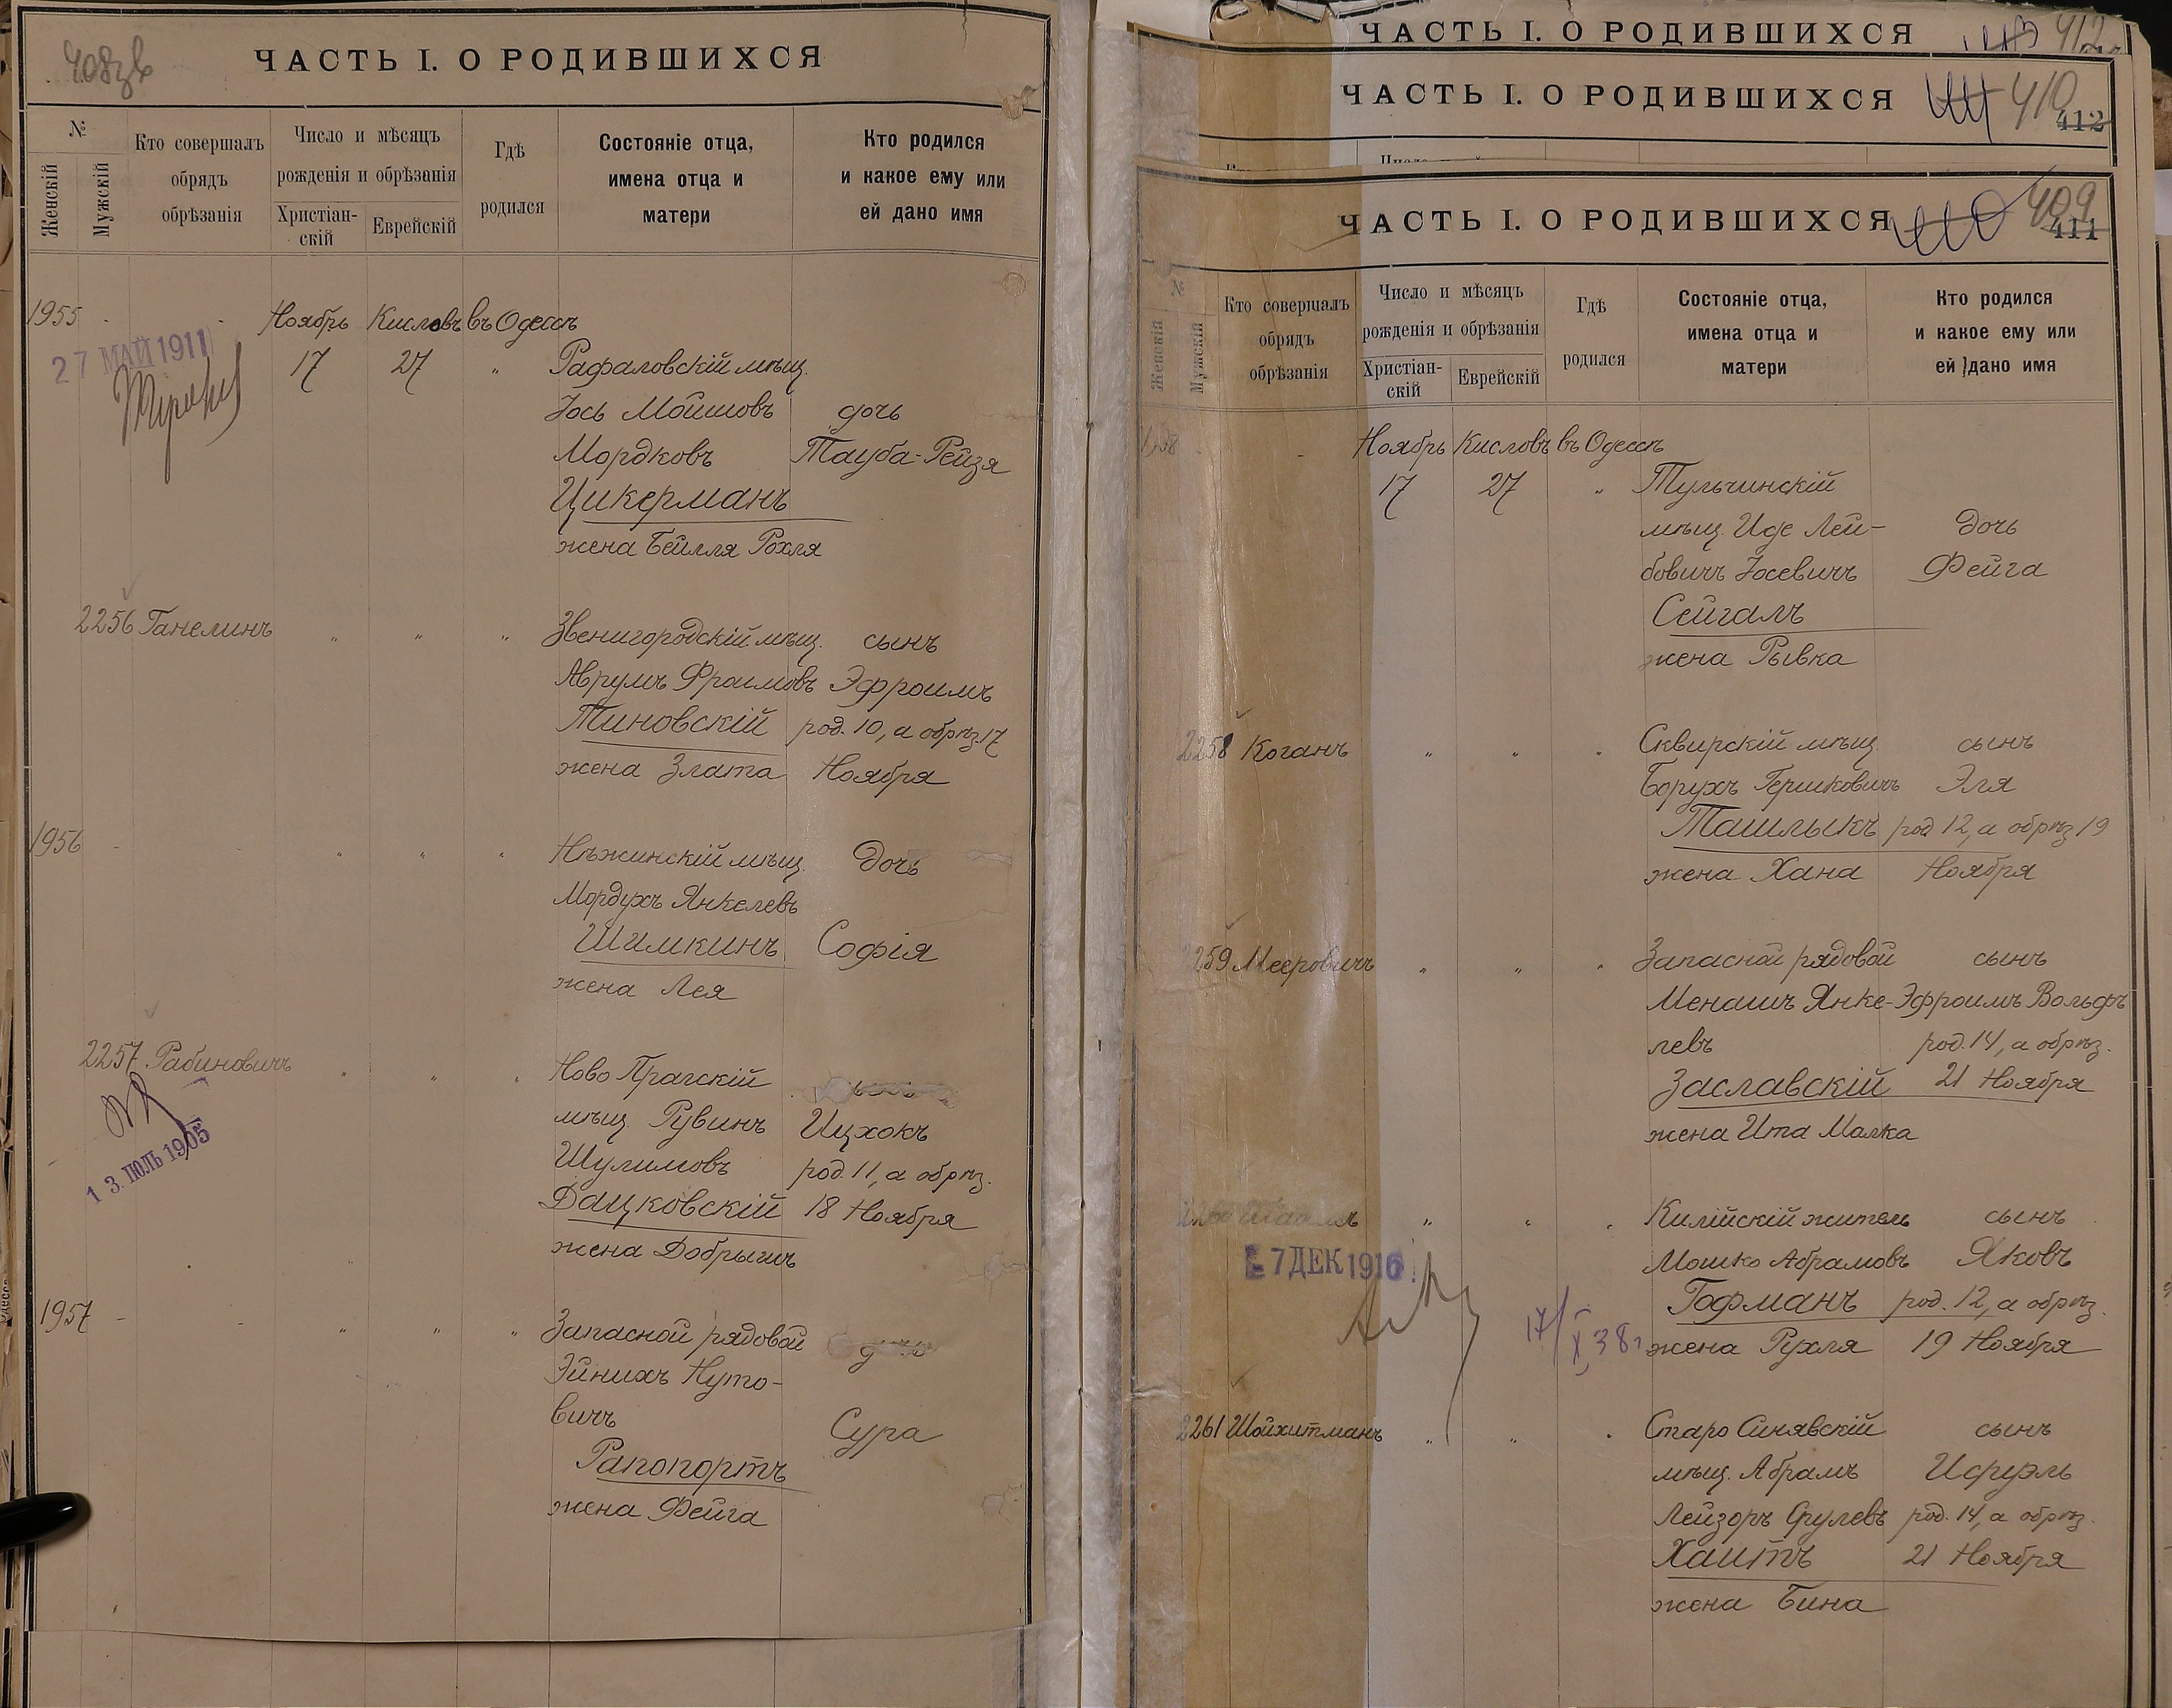 408зв
ЧАСТЬ I. О РОДИВШИХСЯ
№
Женскій
Мужскій
Кто совершалъ
обрядъ
обрѣзанія
Число и мѣсяцъ
рожденія и обрѣзанія
Христіан-
скій
Еврейскій
Гдѣ
родился
Состояніе отца,
имена отца и
матери
Кто родился
и какое ему или
ей дано имя
1955 Ноябрь Кисловъ въ Одессѣ
27 МАЙ 1911
17 27 " Рафаловскій мѣщ.
Іось Мойшовъ дочь
Мордковъ Тауба-Рейзя
Цикерманъ
жена Бейлля Рохля
2256 Ганелинъ " " " Звенигородскій мѣщ. сынъ
Аврумъ Фроимовъ Эфроимъ
Тиновскій род. 10, а обрѣз. 17
жена Злата Ноября
1956 - " " " Нѣжинскій мѣщ. дочь
Мордухъ Янкелевъ
Шимкинъ Софія
жена Лея
2257 Рабиновичъ " " " Ново Прагскій
мѣщ. Рувинъ Ицхокъ
Шулимовъ род. 11, а обрѣз.
Дацковскій 18 Ноября
жена Добрышъ
13. ІЮЛЬ 1905
1957 - - " " " Запасной рядовой
Эйнихъ Нуто-
вичъ Сура
Рапопортъ
жена Фейга
ЧАСТЬ I. О РОДИВШИХСЯ 412
ЧАСТЬ I. О РОДИВШИХСЯ 410
412
ЧАСТЬ I. О РОДИВШИХСЯ 409
411
№
Женскій
Мужскій
Кто совершалъ
обрядъ
обрѣзанія
Число и мѣсяцъ
рожденія и обрѣзанія
Христіан-
скій
Еврейскій
Гдѣ
родился
Состояніе отца,
имена отца и
матери
Кто родился
и какое ему или
ей дано имя
1958 - Ноябрь Кисловъ въ Одессѣ
17 27 " Тульчинскій
мѣщ. Иде Лей- дочь
бовичъ Іосевичъ Фейга
Сейгалъ
жена Рывка
2258 Коганъ " " " Сквирскій мѣщ. сынъ
Борухъ Гершковичъ Эля
Ташлыкъ род. 12, а обрѣз. 19
жена Хана Ноября
2259 Мееровичъ " " " Запасной рядовой сынъ
Менашъ Янке- Эфроимъ Вольфъ
левъ род. 14, а обрѣз.
Заславскій 21 Ноября
жена Ита Малка
" " " Килійскій житель сынъ
7 ДЕК 1916
Мошко Абрамовъ Яковъ
Гофманъ род. 12, а обрѣз.
17/X 38г жена Рухля 19 Ноября
2261 Шойхитманъ " " " Старо Синявскій сынъ
мѣщ. Абрамъ Исруэль
Лейзоръ Срулевъ род. 14, а обрѣз.
Хаитъ 21 Ноября
жена Бина